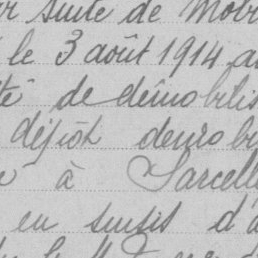 suite de Mob
le 3 août 1914 a
té de démobilis
dépôt démobi
à Sarcell
en sursis d'a